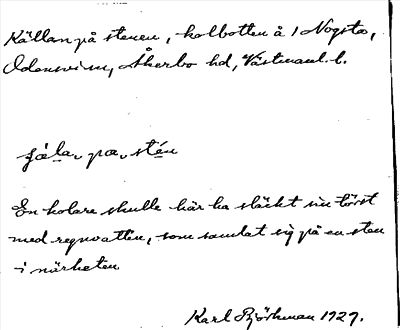 Källan på stenen, kolbotten å 1 Nogsta,
Odensvi sn, Åkerbo hd, Västmanl. l.
çä̀lan pa stén
En kolare skulle här ha släckt sin törst
med regnvatten, som samlat sig på en sten
i närheten
Karl Björkman 1929.